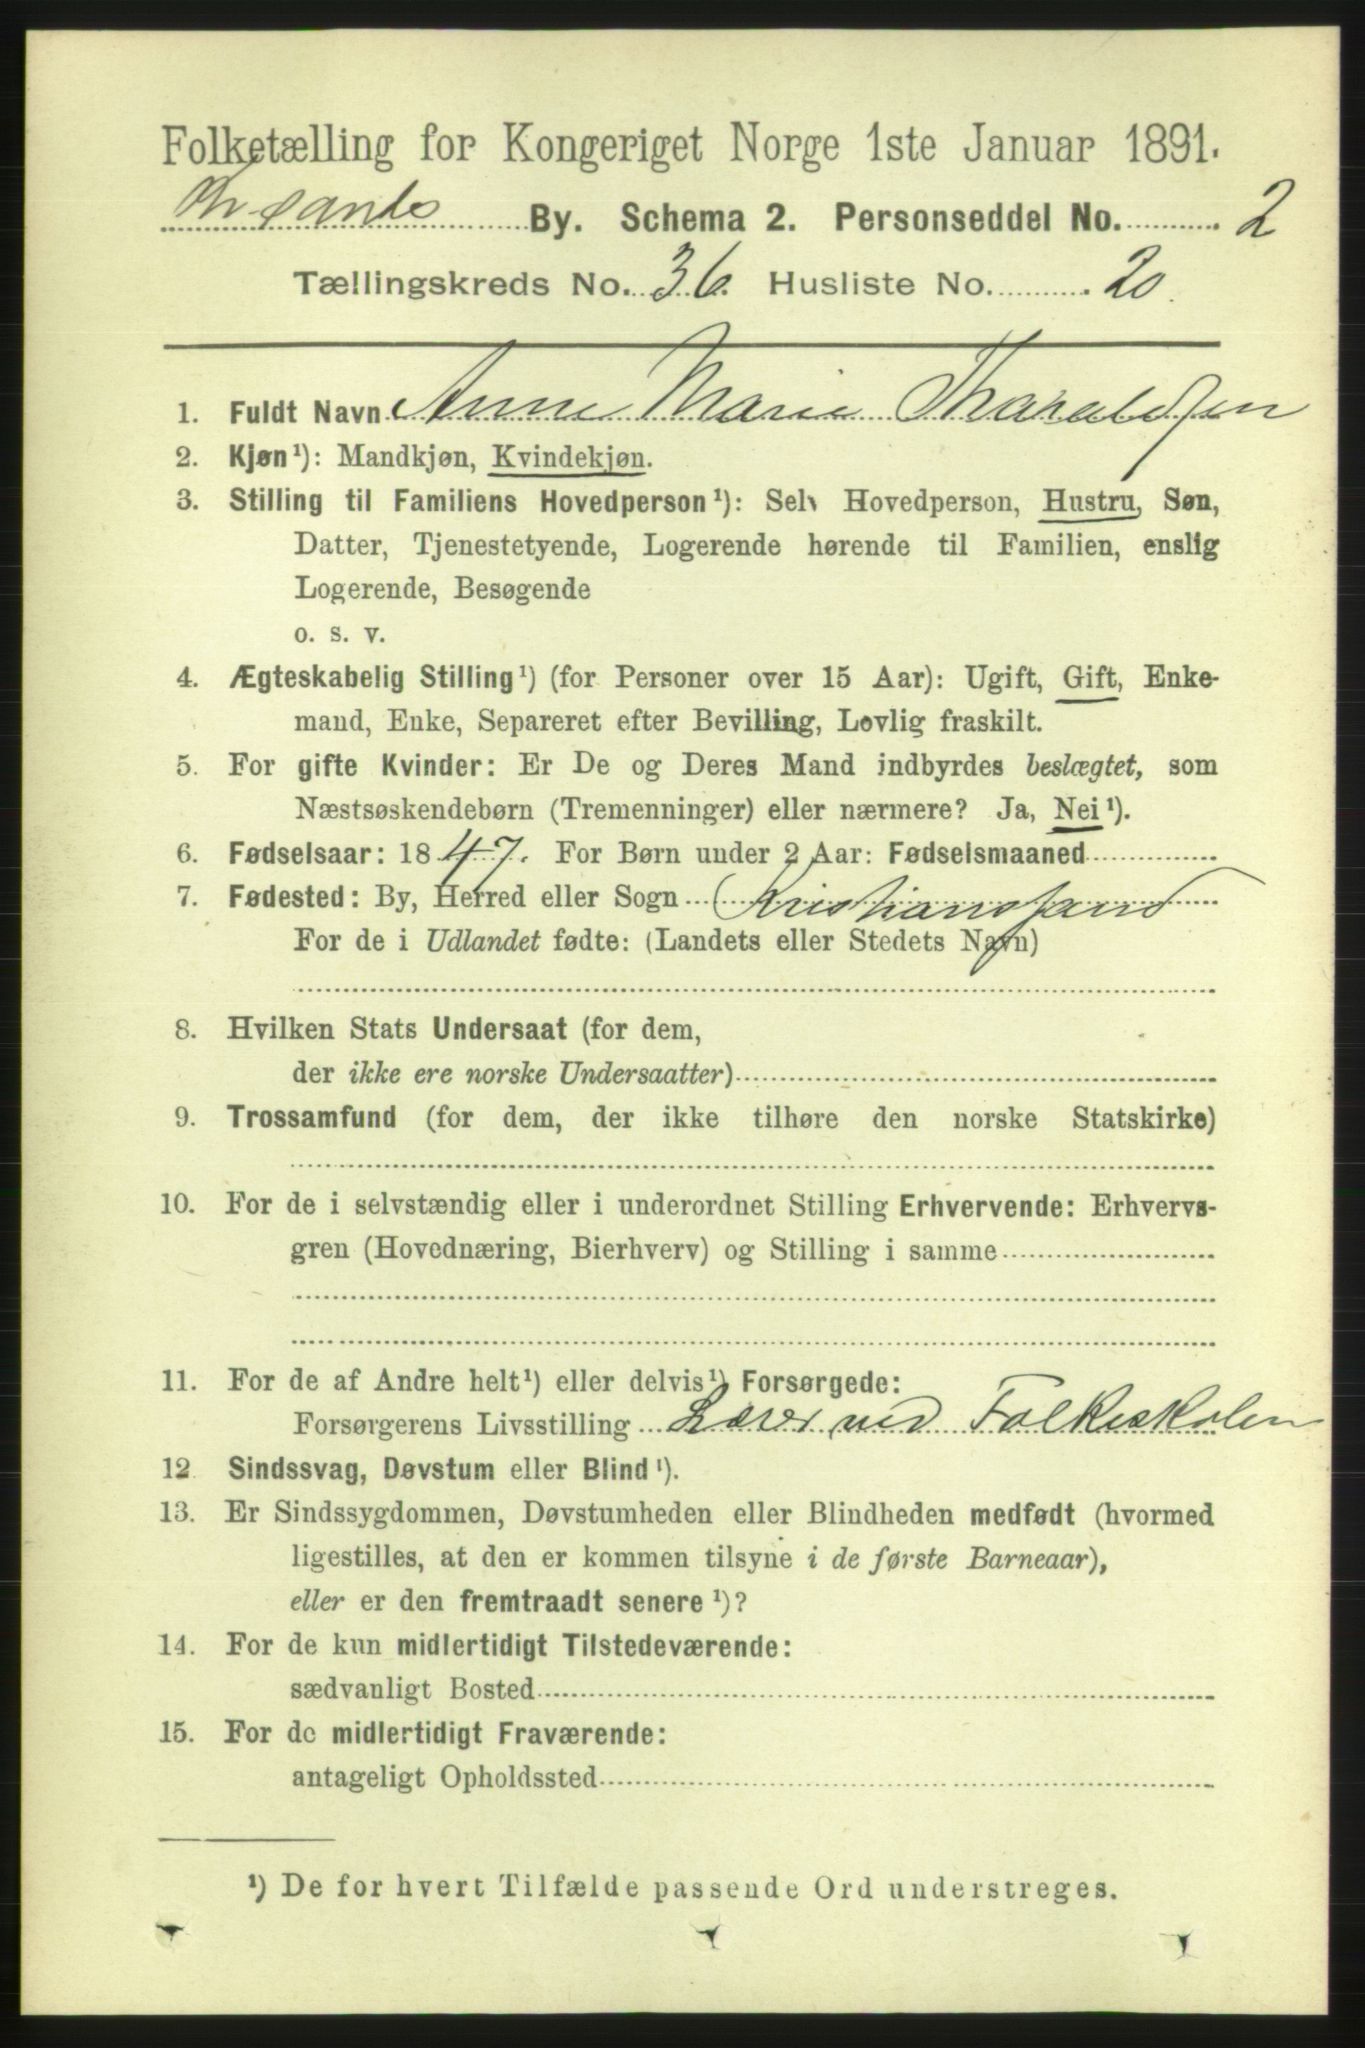 Folketælling for Kongeriget Norge 1ste Januar 1891.
Kr.sands By. Schema 2. Personseddel No. 2
Tællingskreds No. 36. Husliste No. 20
1. Fuldt Navn Anne Marie Tharaldsen
2. Kjøn¹): Mandkjøn, Kvindekjøn.
3. Stilling til Familiens Hovedperson¹): Selv Hovedperson, Hustru, Søn,
Datter, Tjenestetyende, Logerende hørende til Familien, enslig
Logerende, Besøgende
o. s. v.
4. Ægteskabelig Stilling¹) (for Personer over 15 Aar): Ugift, Gift, Enke-
mand, Enke, Separeret efter Bevilling, Lovlig fraskilt.
5. For gifte Kvinder: Er De og Deres Mand indbyrdes beslægtet, som
Næstsøskendebørn (Tremenninger) eller nærmere? Ja, Nei¹).
6. Fødselsaar: 1847. For Børn under 2 Aar: Fødselsmaaned
7. Fødested: By, Herred eller Sogn Kristianssand
For de i Udlandet fødte: (Landets eller Stedets Navn)
8. Hvilken Stats Undersaat (for dem,
der ikke ere norske Undersaatter)
9. Trossamfund (for dem, der ikke tilhøre den norske Statskirke)
10. For de i selvstændig eller i underordnet Stilling Erhvervende: Erhvervs-
gren (Hovednæring, Bierhverv) og Stilling i samme
11. For de af Andre helt¹) eller delvis¹) Forsørgede:
Forsørgerens Livsstilling Lærer ved Folkeskolen
12. Sindssvag, Døvstum eller Blind¹).
13. Er Sindssygdommen, Døvstumheden eller Blindheden medfødt (hvormed
ligestilles, at den er kommen tilsyne i de første Barneaar),
eller er den fremtraadt senere¹)?
14. For de kun midlertidigt Tilstedeværende:
sædvanligt Bosted
15. For de midlertidigt Fraværende:
antageligt Opholdssted
¹) De for hvert Tilfælde passende Ord understreges.